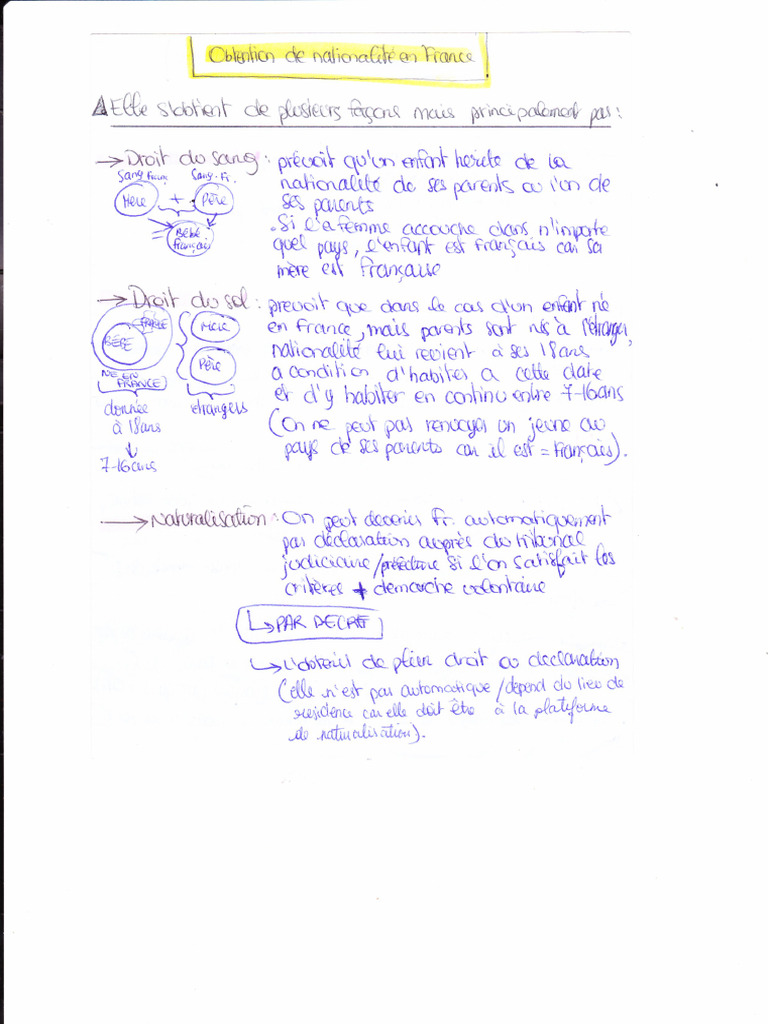 Obtention de nationalité en France
Elle s'obtient de plusieurs façons mais principalement par :
→ Droit du sang : prévoit qu'un enfant hérite de la
nationalité de ses parents ou l'un de
ses parents
. Si la femme accouche dans n'importe
quel pays, l'enfant est français car sa
mère est Française
Sang Franç Sang. Fr.
Mère + Père
= Bébé
Français
→ Droit du sol : prevoit que dans le cas d'un enfant né
en France, mais parents sont nés à l'étranger,
nationalité lui revient à ses 18ans
a condition d'habiter a cette date
et d'y habiter en continu entre 7-16ans
(On ne peut pas renvoyer un jeune au
pays de ses parents car il est = Français).
FRANCE
BÉBÉ
NÉ EN
FRANCE
donnée
à 18ans
↓
7-16ans
Mère
Père
etrangers
→ Naturalisation : On peut devenir Fr. automatiquement
par déclaration auprès du tribunal
judiciaire/préfecture si l'on satisfait les
critères + démarche volontaire
↳ PAR DECRET
↳ L'obtenir de plein droit ou declaration
(elle n'est pas automatique/depend du lieu de
residence car elle doit être à la plateforme
de naturalisation).